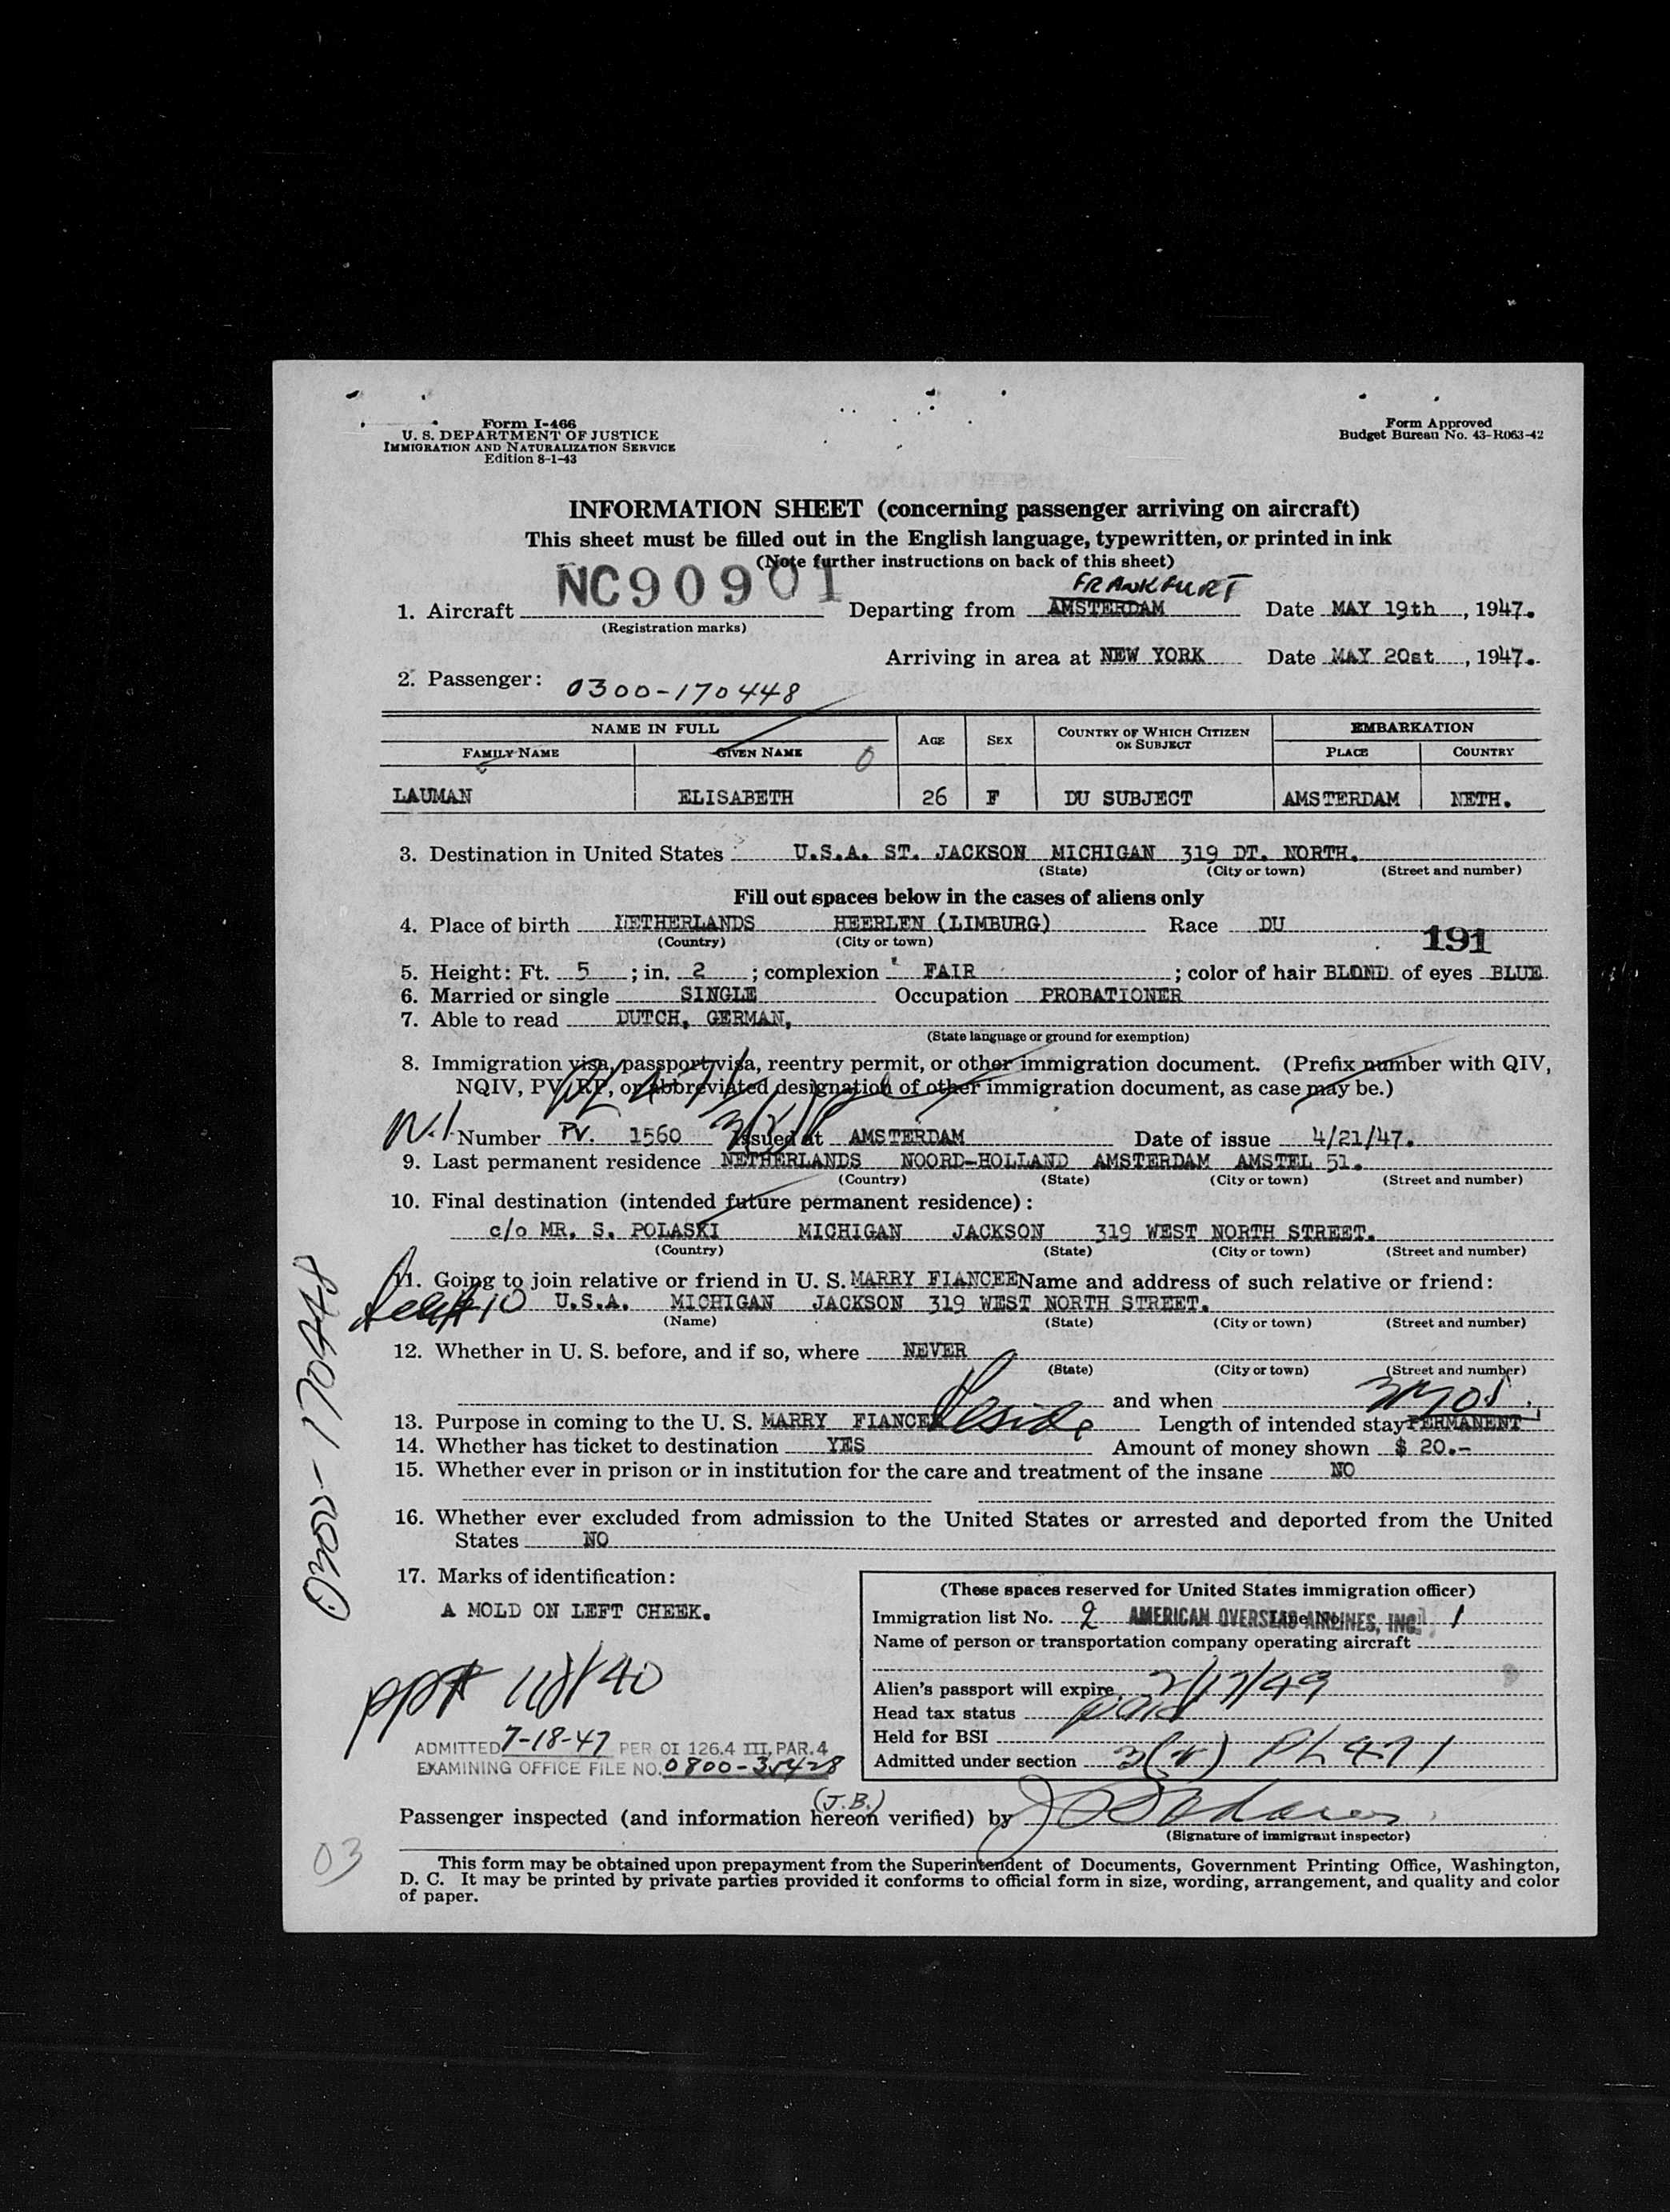 Form I-466
U. S. DEPARTMENT OF JUSTICE
IMMIGRATION AND NATURALIZATION SERVICE
Edition 8-1-43
Form Approved
Budget Bureau No. 43-R063-42
INFORMATION SHEET (concerning passenger arriving on aircraft)
This sheet must be filled out in the English language, typewritten, or printed in ink
(Note further instructions on back of this sheet)
FRANKFURT
1. Aircraft NC90901 Departing from AMSTERDAM Date MAY 19th, 1947.
(Registration marks)
Arriving in area at NEW YORK Date MAY 20st, 1947.
2. Passenger: 0300-170448
NAME IN FULL AGE SEX COUNTRY OF WHICH CITIZEN OR SUBJECT EMBARKATION
FAMILY NAME GIVEN NAME PLACE COUNTRY
0
LAUMAN ELISABETH 26 F DU SUBJECT AMSTERDAM NETH.
3. Destination in United States U.S.A. ST. JACKSON MICHIGAN 319 DT. NORTH.
(State) (City or town) (Street and number)
Fill out spaces below in the cases of aliens only
4. Place of birth NETHERLANDS HEERLEN (LIMBURG) Race DU
(Country) (City or town)
191
5. Height: Ft. 5; in. 2; complexion FAIR; color of hair BLOND of eyes BLUE
6. Married or single SINGLE Occupation PROBATIONER
7. Able to read DUTCH, GERMAN,
(State language or ground for exemption)
8. Immigration visa, passport visa, reentry permit, or other immigration document. (Prefix number with QIV,
NQIV, PV, RP, or abbreviated designation of other immigration document, as case may be.)
Number PV. 1560 Issued at AMSTERDAM Date of issue 4/21/47.
9. Last permanent residence NETHERLANDS NOORD-HOLLAND AMSTERDAM AMSTEL 51.
(Country) (State) (City or town) (Street and number)
10. Final destination (intended future permanent residence):
c/o MR. S. POLASKI MICHIGAN JACKSON 319 WEST NORTH STREET.
(Country) (State) (City or town) (Street and number)
11. Going to join relative or friend in U. S. MARRY FIANCEE Name and address of such relative or friend:
U.S.A. MICHIGAN JACKSON 319 WEST NORTH STREET.
(Name) (State) (City or town) (Street and number)
12. Whether in U. S. before, and if so, where NEVER
(State) (City or town) (Street and number)
and when
13. Purpose in coming to the U. S. MARRY FIANCEE Reside Length of intended stay PERMANENT
14. Whether has ticket to destination YES Amount of money shown $ 20.-
15. Whether ever in prison or in institution for the care and treatment of the insane NO
16. Whether ever excluded from admission to the United States or arrested and deported from the United
States NO
17. Marks of identification:
A MOLD ON LEFT CHEEK.
(These spaces reserved for United States immigration officer)
Immigration list No. 2 Line No. 1
AMERICAN OVERSEAS AIRLINES, INC.
Name of person or transportation company operating aircraft
Alien's passport will expire 2/17/49
Head tax status paid
Held for BSI
Admitted under section PL 471
ADMITTED 7-18-47 PER OI 126.4 III, PAR. 4
EXAMINING OFFICE FILE NO. 0800-35428
(J.B.)
Passenger inspected (and information hereon verified) by
(Signature of immigrant inspector)
This form may be obtained upon prepayment from the Superintendent of Documents, Government Printing Office, Washington,
D. C. It may be printed by private parties provided it conforms to official form in size, wording, arrangement, and quality and color
of paper.
0300-170448
03